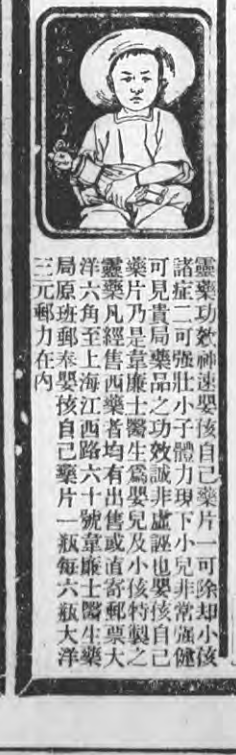 靈藥功效神速嬰孩自己藥片一可除却小孩
諸症二可强壯小子體力現下小兒非常强健
可見貴局藥品之功效誠非虛誣也嬰孩自己
藥片乃是韋廉士醫生爲嬰兒及小孩特製之
靈藥凡經售西藥者均有出售或直寄郵票大
洋六角至上海江西路六十號韋廉士醫生藥
局原班郵奉嬰孩自己藥片一瓶每六瓶大洋
三元郵力在內